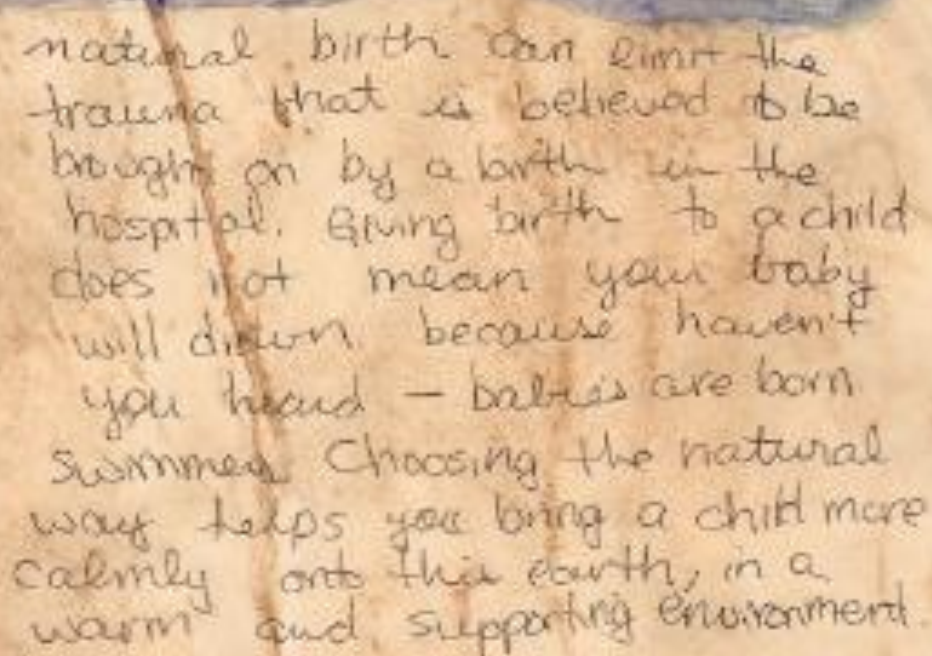 natural birth can limit the
trauma that is believed to be
brought on by a birth in the
hospital. Giving birth to a child
does not mean your baby
will drown because haven't
you heard – babies are born
swimmers Choosing the natural
way helps you bring a child more
calmly onto this earth, in a
warm and supporting environment.